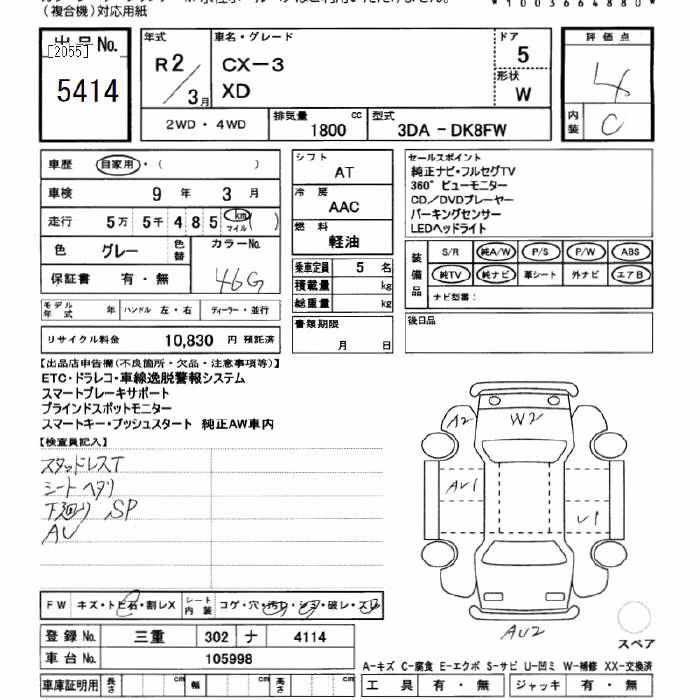 (複合機)対応用紙
*1003664880*
出品No.
[2055]
5414
年式
R2/3月
車名・グレード
CX-3
XD
ドア
5
形状
W
評価点
4
内装
C
2WD・4WD
排気量
1800 cc
型式
3DA-DK8FW
車歴 自家用・( )
車検 9年 3月
走行 5万 5千 4 8 5 km マイル ( )
色 グレー 色替
カラーNo.
46G
保証書 有・無
モデル年式 年 ハンドル 左・右 ディーラー・並行
リサイクル料金 10,830 円 預託済
シフト
AT
冷房
AAC
燃料
軽油
乗車定員 5 名
積載量 kg
総重量 kg
書類期限
月 日
セールスポイント
純正ナビ・フルセグTV
360°ビューモニター
CD/DVDプレーヤー
パーキングセンサー
LEDヘッドライト
装備品
S/R 純A/W P/S P/W ABS
純TV 純ナビ 革シート 外ナビ エアB
ナビ型番:
後日品
【出品店申告欄(不良箇所・欠品・注意事項等)】
ETC・ドラレコ・車線逸脱警報システム
スマートブレーキサポート
ブラインドスポットモニター
スマートキー・プッシュスタート 純正AW車内
【検査員記入】
スタッドレスT
シートヘタリ
下廻り SP
AU
A2
W2
AU1
U1
AU2
スペア
FW キズ・トビ石・割レX シート内装 コゲ・穴・汚レ・シミ・破レ・スレ
登録No. 三重 302 ナ 4114
車台No. 105998
A-キズ C-腐食 E-エクボ S-サビ U-凹ミ W-補修 XX-交換済
車庫証明用 長さ cm 幅 cm 高さ cm
工具 有・無 ジャッキ 有・無